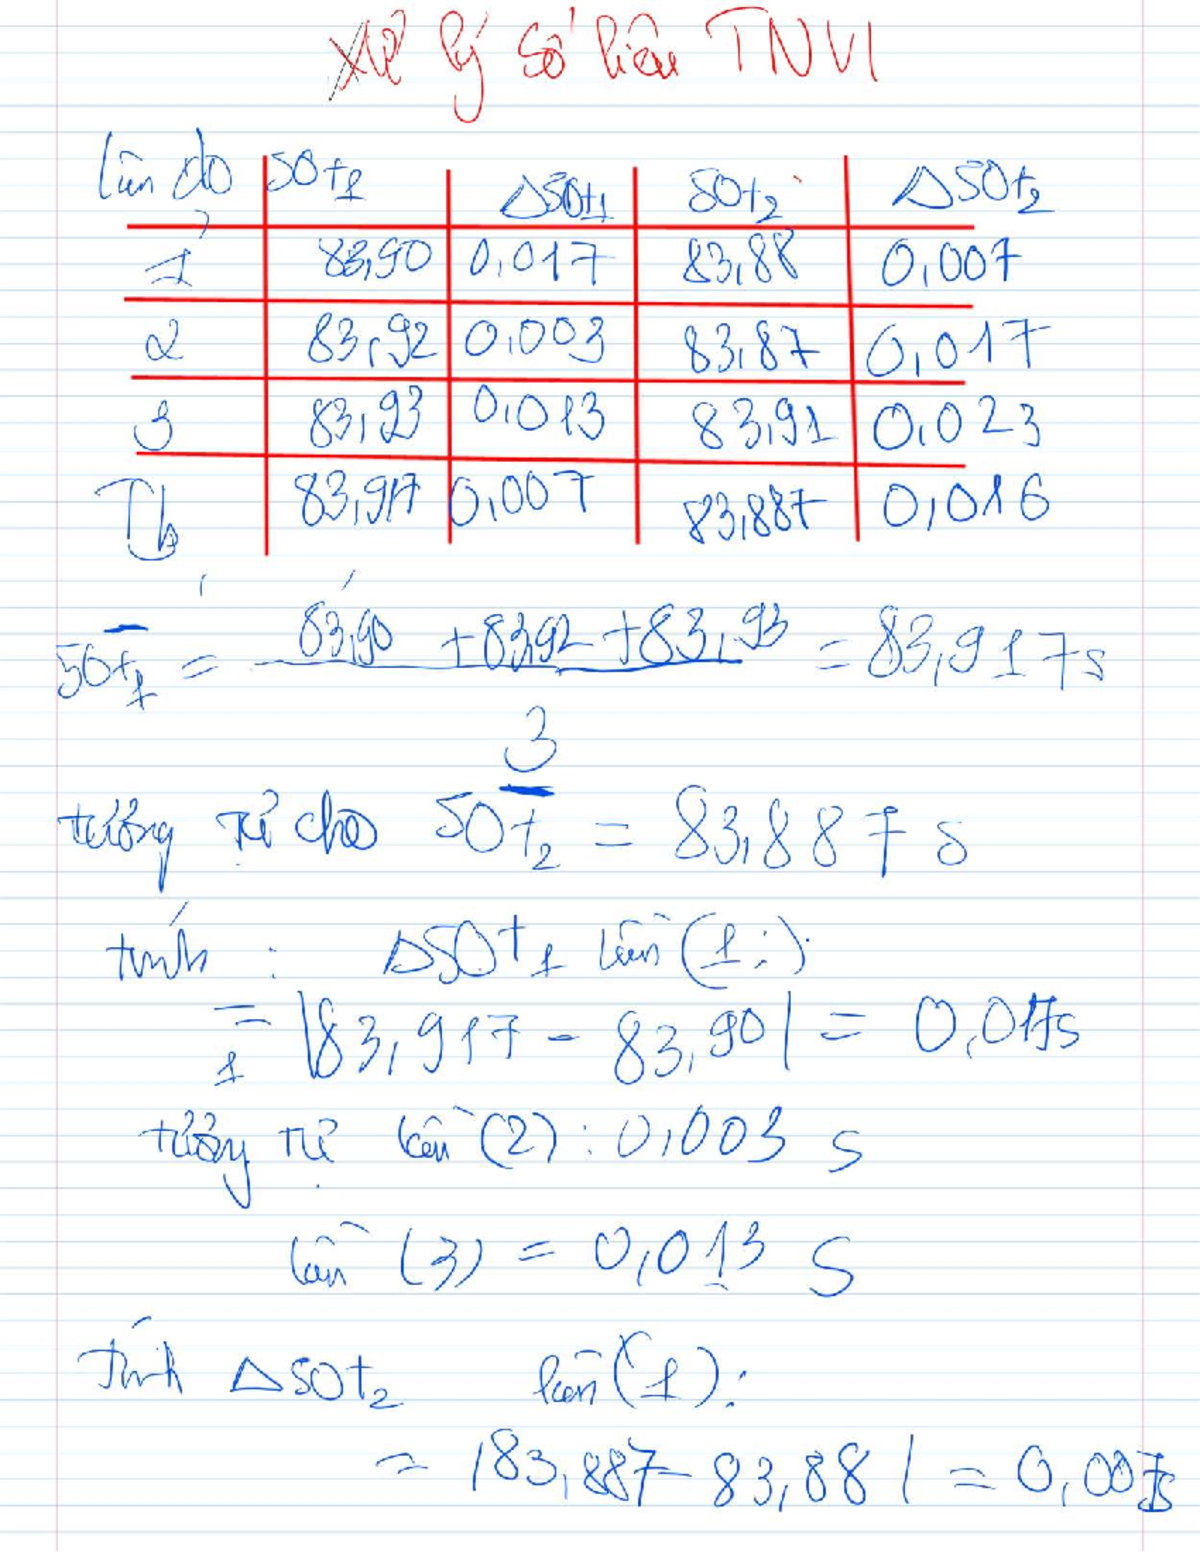 Xử lý số liệu TNVL
lần đo 50t₁ Δ50t₁ 50t₂ Δ50t₂
1 83,90 0,017 83,88 0,007
2 83,92 0,003 83,87 0,017
3 83,93 0,013 83,91 0,023
Tb 83,917 0,007 83,887 0,016
50t̄₁ = 83,90 + 83,92 + 83,93 = 83,917s
3
tương tự cho 50t̄₂ = 83,887 s
tính : Δ50t₁ lần (1:).
= |83,917 - 83,90| = 0,017s
1
tương tự lần (2) : 0,003 s
lần (3) = 0,013 s
Tính Δ50t₂ lần (1):
= |83,887 - 83,88| = 0,007s